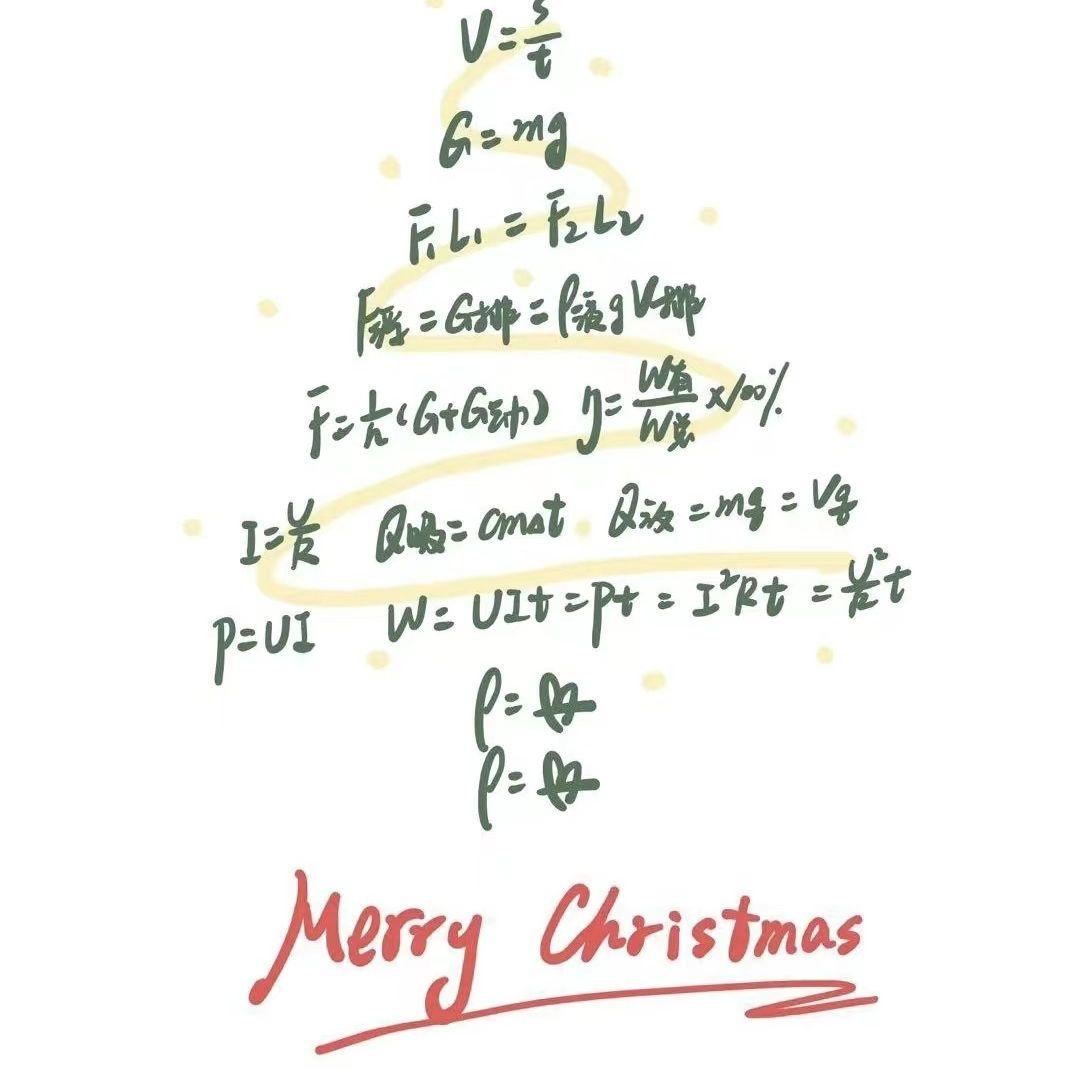 V=s/t
G=mg
F₁L₁=F₂L₂
F浮=G排=ρ液gV排
F=1/n(G+G动) η=W有/W总×100%
I=U/R Q吸=cm△t Q放=mq=Vq
P=UI W=UIt=Pt=I²Rt=U²/R t
ρ=
ρ=
Merry Christmas